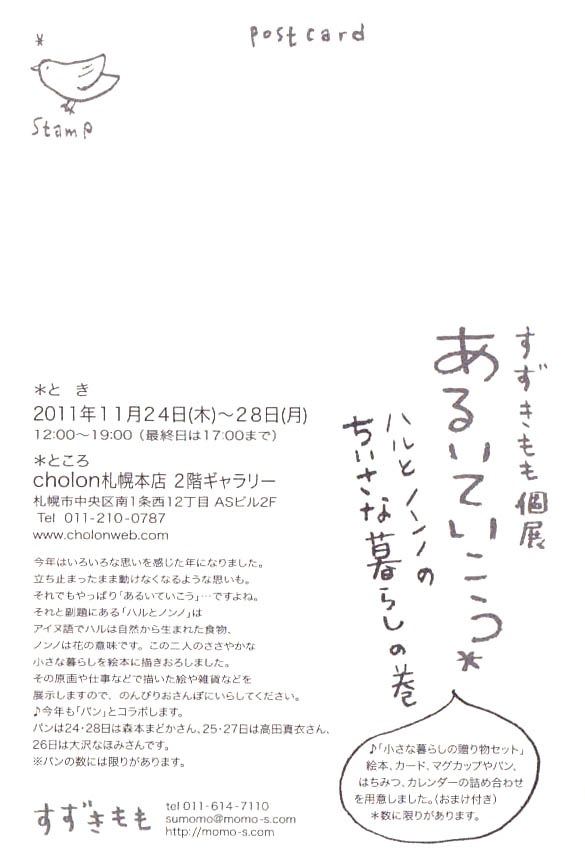 postcard
*
Stamp
すずきもも個展
あるいていこう*
ハルとノンノの
ちいさな暮らしの巻
*と き
2011年11月24日(木)〜28日(月)
12:00〜19:00（最終日は17:00まで）
*ところ
cholon札幌本店 2階ギャラリー
札幌市中央区南1条西12丁目 ASビル2F
Tel 011-210-0787
www.cholonweb.com
今年はいろいろな思いを感じた年になりました。
立ち止まったまま動けなくなるような思いも。
それでもやっぱり「あるいていこう」…ですよね。
それと副題にある「ハルとノンノ」は
アイヌ語でハルは自然から生まれた食物、
ノンノは花の意味です。この二人のささやかな
小さな暮らしを絵本に描きおろしました。
その原画や仕事などで描いた絵や雑貨などを
展示しますので、のんびりおさんぽにいらしてください。
♪今年も「パン」とコラボします。
パンは24・28日は森本まどかさん、25・27日は高田真衣さん、
26日は大沢なほみさんです。
※パンの数には限りがあります。
♪「小さな暮らしの贈り物セット」
絵本、カード、マグカップやパン、
はちみつ、カレンダーの詰め合わせ
を用意しました。（おまけ付き）
*数に限りがあります。
すずきもも
tel 011-614-7110
sumomo@momo-s.com
http://momo-s.com